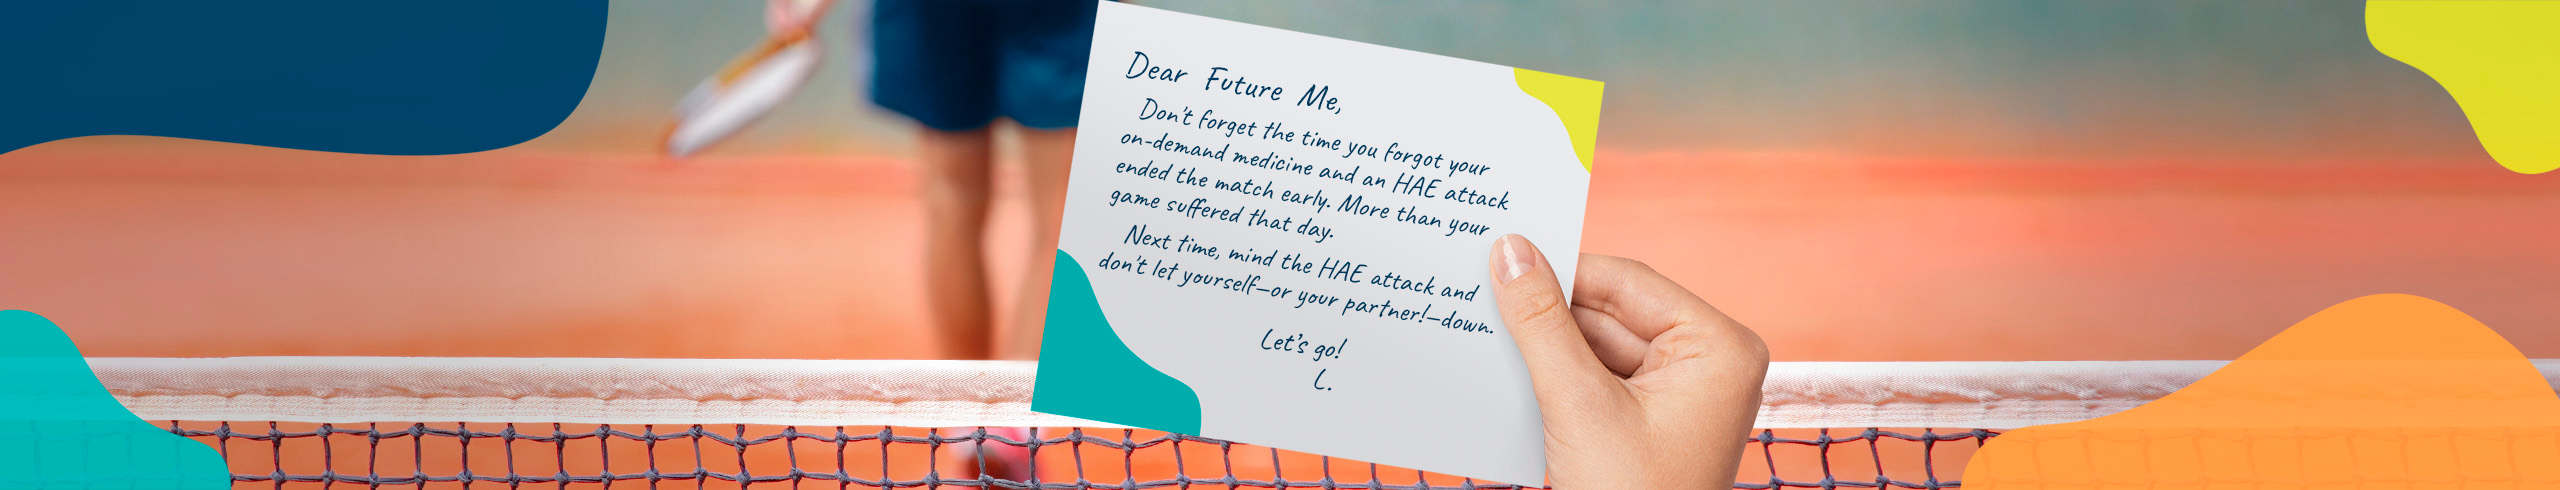 Dear Future Me,
Don't forget the time you forgot your
on-demand medicine and an HAE attack
ended the match early. More than your
game suffered that day.
Next time, mind the HAE attack and
don't let yourself—or your partner!—down.
Let's go!
L.